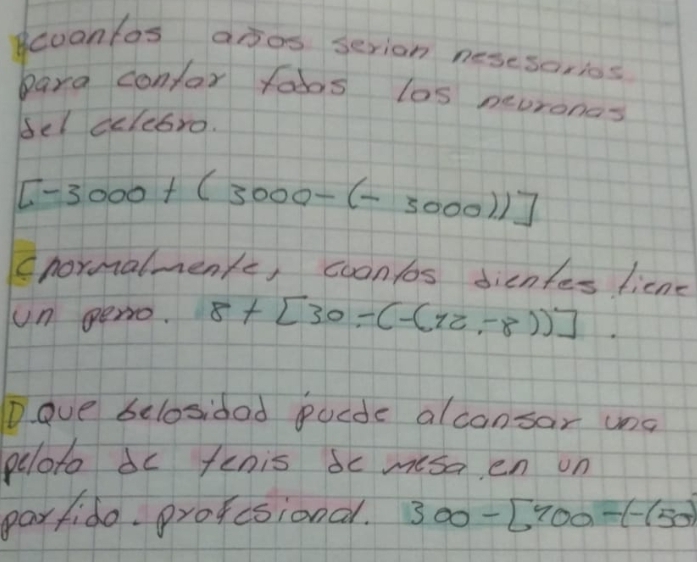 Bcuantos años serian nesesarios
para contar todas las neuronas
del celebro.
[-3000+(3000-(-3000))]
C normalmente, cuantos dientes tiene
un perro. 8+[30-(-(12-8))].
D.Que belosidad puede alcansar una
pelota de tenis de mesa en un
partido.profesional. 300-[100-(-(50)